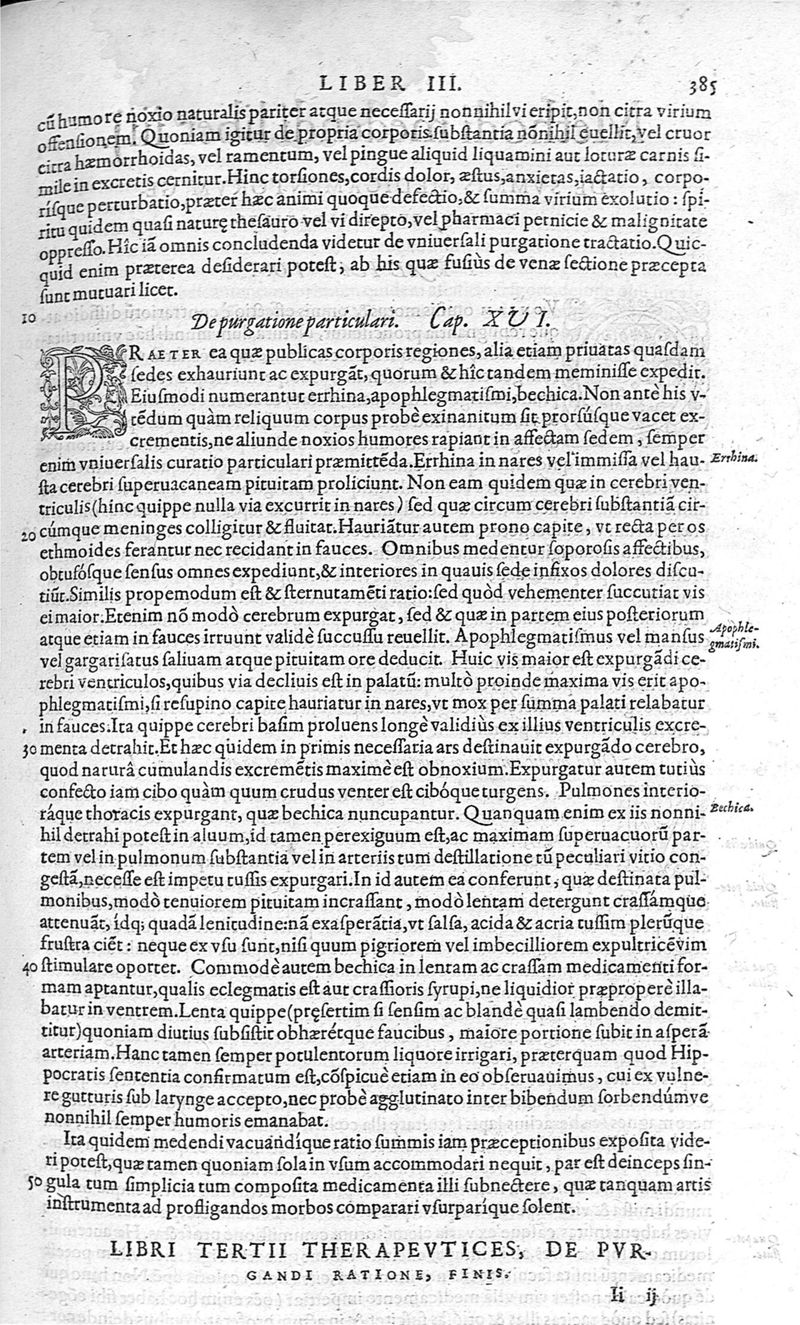 LIBER III. 385
cũ humore noxio naturalis pariter atque necessarij nonnihil vi eripit, non citra virium
offensionem. Quoniam igitur de propria corporis substantia nõnihil euellit, vel cruor
citra hæmorrhoidas, vel ramentum, vel pingue aliquid liquamini aut loturæ carnis si-
mile in excretis cernitur. Hinc torsiones, cordis dolor, æstus, anxietas, iactatio, corpo-
rísque perturbatio, præter hæc animi quoque defectio, & summa virium exolutio: spi-
ritu quidem quasi naturę thesauro vel vi direpto, vel pharmaci pernicie & malignitate
oppresso. Hîc iã omnis concludenda videtur de vniuersali purgatione tractatio. Quic-
quid enim præterea desiderari potest, ab his quæ fusiùs de venæ sectione præcepta
sunt mutuari licet.
10 De purgatione particulari. Cap. XVI.
PRAETER ea quæ publicas corporis regiones, alia etiam priuatas quasdam
sedes exhauriunt ac expurgãt, quorum & hîc tandem meminisse expedit.
Eiusmodi numerantur errhina, apophlegmatismi, bechica. Non antè his v-
tẽdum quàm reliquum corpus probè exinanitum sit, prorsúsque vacet ex-
crementis, ne aliunde noxios humores rapiant in affectam sedem, semper
enim vniuersalis curatio particulari præmittẽda. Errhina in nares vel immissa vel hau- Errhina.
sta cerebri superuacaneam pituitam proliciunt. Non eam quidem quæ in cerebri ven-
triculis (hinc quippe nulla via excurrit in nares) sed quæ circum cerebri substantiã cir-
20 cúmque meninges colligitur & fluitat. Hauriãtur autem prono capite, vt recta per os
ethmoides ferantur nec recidant in fauces. Omnibus medentur soporosis affectibus,
obtusósque sensus omnes expediunt, & interiores in quauis sede infixos dolores discu-
tiũt. Similis propemodum est & sternutamẽti ratio: sed quòd vehementer succutiat vis
ei maior. Etenim nõ modò cerebrum expurgat, sed & quæ in partem eius posteriorum
atque etiam in fauces irruunt validè succussu reuellit. Apophlegmatismus vel mansus Apophle-
gmatismi.
vel gargarisatus saliuam atque pituitam ore deducit. Huic vis maior est expurgãdi ce-
rebri ventriculos, quibus via decliuis est in palatũ: multò proinde maxima vis erit apo-
phlegmatismi, si resupino capite hauriatur in nares, vt mox per summa palati relabatur
in fauces. Ita quippe cerebri basim proluens longè validiùs ex illius ventriculis excre-
30 menta detrahit. Et hæc quidem in primis necessaria ars destinauit expurgãdo cerebro,
quod naturâ cumulandis excremẽtis maximè est obnoxium. Expurgatur autem tutiùs
confecto iam cibo quàm quum crudus venter est cibóque turgens. Pulmones interio-
ráque thoracis expurgant, quæ bechica nuncupantur. Quanquam enim ex iis nonni- Bechica.
hil detrahi potest in aluum, id tamen perexiguum est, ac maximam superuacuorũ par-
tem vel in pulmonum substantia vel in arteriis tum destillatione tũ peculiari vitio con-
gestã, necesse est impetu tussis expurgari. In id autem ea conferunt, quæ destinata pul-
monibus, modò tenuiorem pituitam incrassant, modò lentam detergunt crassámque
attenuãt, ídq; quadã lenitudine: nã exasperãtia, vt salsa, acida & acria tussim plerũque
frustra ciẽt: neque ex vsu sunt, nisi quum pigriorem vel imbecilliorem expultricẽ vim
40 stimulare oportet. Commodè autem bechica in lentam ac crassam medicamenti for-
mam aptantur, qualis eclegmatis est aut crassioris syrupi, ne liquidior præproperè illa-
batur in ventrem. Lenta quippe (pręsertim si sensim ac blandè quasi lambendo demit-
titur) quoniam diutius subsistit obhærétque faucibus, maiore portione subit in asperã
arteriam. Hanc tamen semper potulentorum liquore irrigari, præterquam quod Hip-
pocratis sententia confirmatum est, cõspicuè etiam in eo obseruauimus, cui ex vulne-
re gutturis sub larynge accepto, nec probè agglutinato inter bibendum sorbendúmve
nonnihil semper humoris emanabat.
Ita quidem medendi vacuandíque ratio summis iam præceptionibus exposita vide-
ri potest, quæ tamen quoniam sola in vsum accommodari nequit, par est deinceps sin-
50 gula tum simplicia tum composita medicamenta illi subnectere, quæ tanquam artis
instrumenta ad profligandos morbos comparari vsurparíque solent.
LIBRI TERTII THERAPEVTICES, DE PVR-
GANDI RATIONE, FINIS.
Ii ij